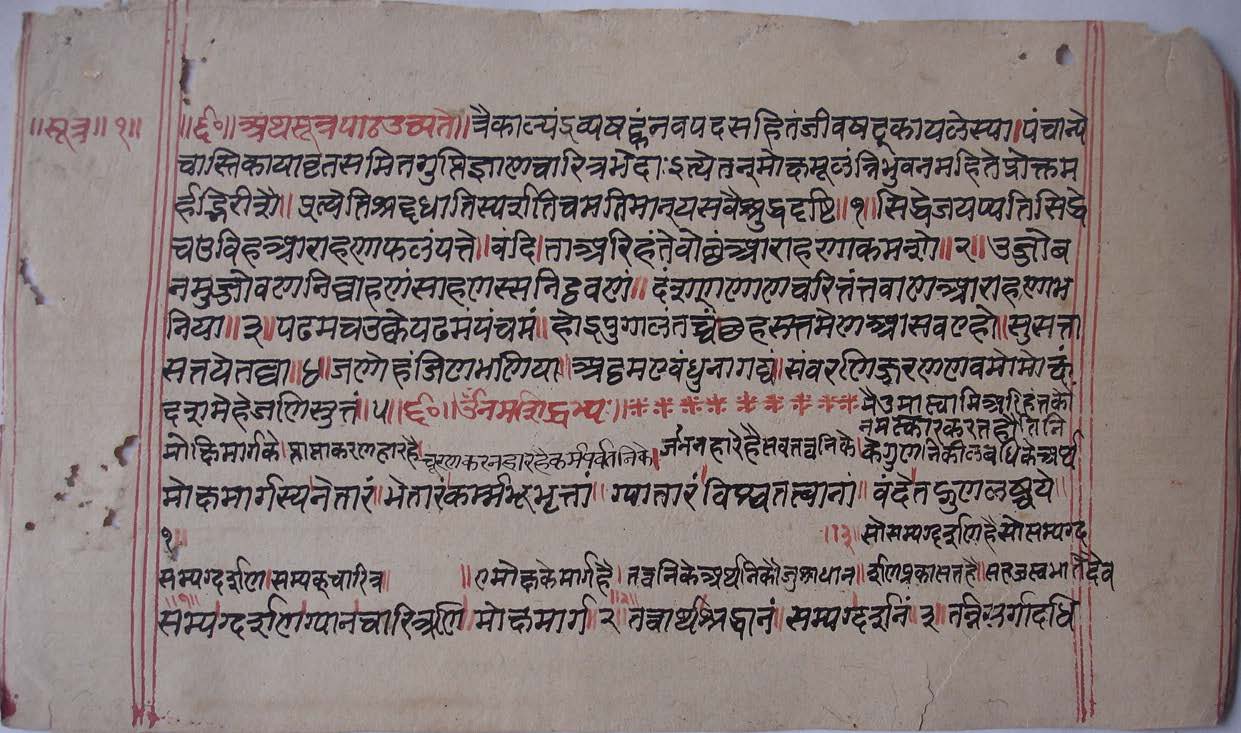 ॥सूत्र॥ १॥
॥६०॥ अथसूत्रपाठउच्यते॥ त्रैकाल्यंद्रव्यषट्कंनवपदसहितंजीवषट्कायलेस्या॥ पंचान्ये
चास्तिकायाव्रतसमितगुप्तिज्ञाणचारित्रभेदाः इत्येतन्मोक्षमूलंत्रिभुवनमहितेप्रोक्तम
र्हद्भिरीशै॥ प्रत्येतिश्रद्दधातिस्पर्शतिचमतिमान्यसवैशुद्धदृष्टि॥ १॥ सिद्धेजयप्पतिसिद्धे
चउविहआराहणाफलंपत्ते॥ वंदि।ताअरिहंतेवोछंआराहणाकमसो॥ २॥ उज्जोव
नमुज्जोवणनिव्वाहणंसाहणस्सनिट्ठवणं॥ दंसणणाणचरित्तंतवाणआराहणाभ
निया॥ ३॥ पढमचउक्केपढमंपंचमं॥ होइपुगालंतच्चंछहसत्तमेणआसवएहो॥ सुसत्ता
सतयेतव्वा॥ ४॥ जणेहंजिणभणिया॥ अट्ठमएवंधुनागव्वं॥ संवरणिज्जरणणवमोमोक्षं
दसमेहेजणिस्सुत्तं॥ ५॥ ॥६०॥ उँनमःसिद्धेभ्यः॥ मैउमास्वामिअरिहंतको
नमस्कारकरतहौ।तिनि
मोक्षिमार्गके। प्राप्तकरणहारहै चूरणकरनहारहैकर्मपर्वतनिके। जांननहारेहैसवतत्वनिके। केगुणनिकीलवधिकेअर्थ
मोक्षमार्गस्यनेतारं॥ भेतारंकर्म्मभूभृत्तां॥ ग्यातारंविश्वतत्वानां॥ वंदेतद्गुणलब्धये॥
१॥ ॥३॥ सोसम्यग्दर्शणहैसोसम्यग्द
सम्यग्दर्शण।सम्यक्चारित्र॥ ॥एमोक्षकेमार्गहै। तत्वनिकेअर्थनिकौजुश्रधान॥ र्शणप्रकासतहै॥ सहजस्वभातैदैव
सम्यग्दर्शणग्यानचारित्रणि मोक्षमार्ग २॥ तत्वार्थश्रद्धानं॥ सम्यग्दर्शनं॥ ३॥ तन्निसर्गादधि